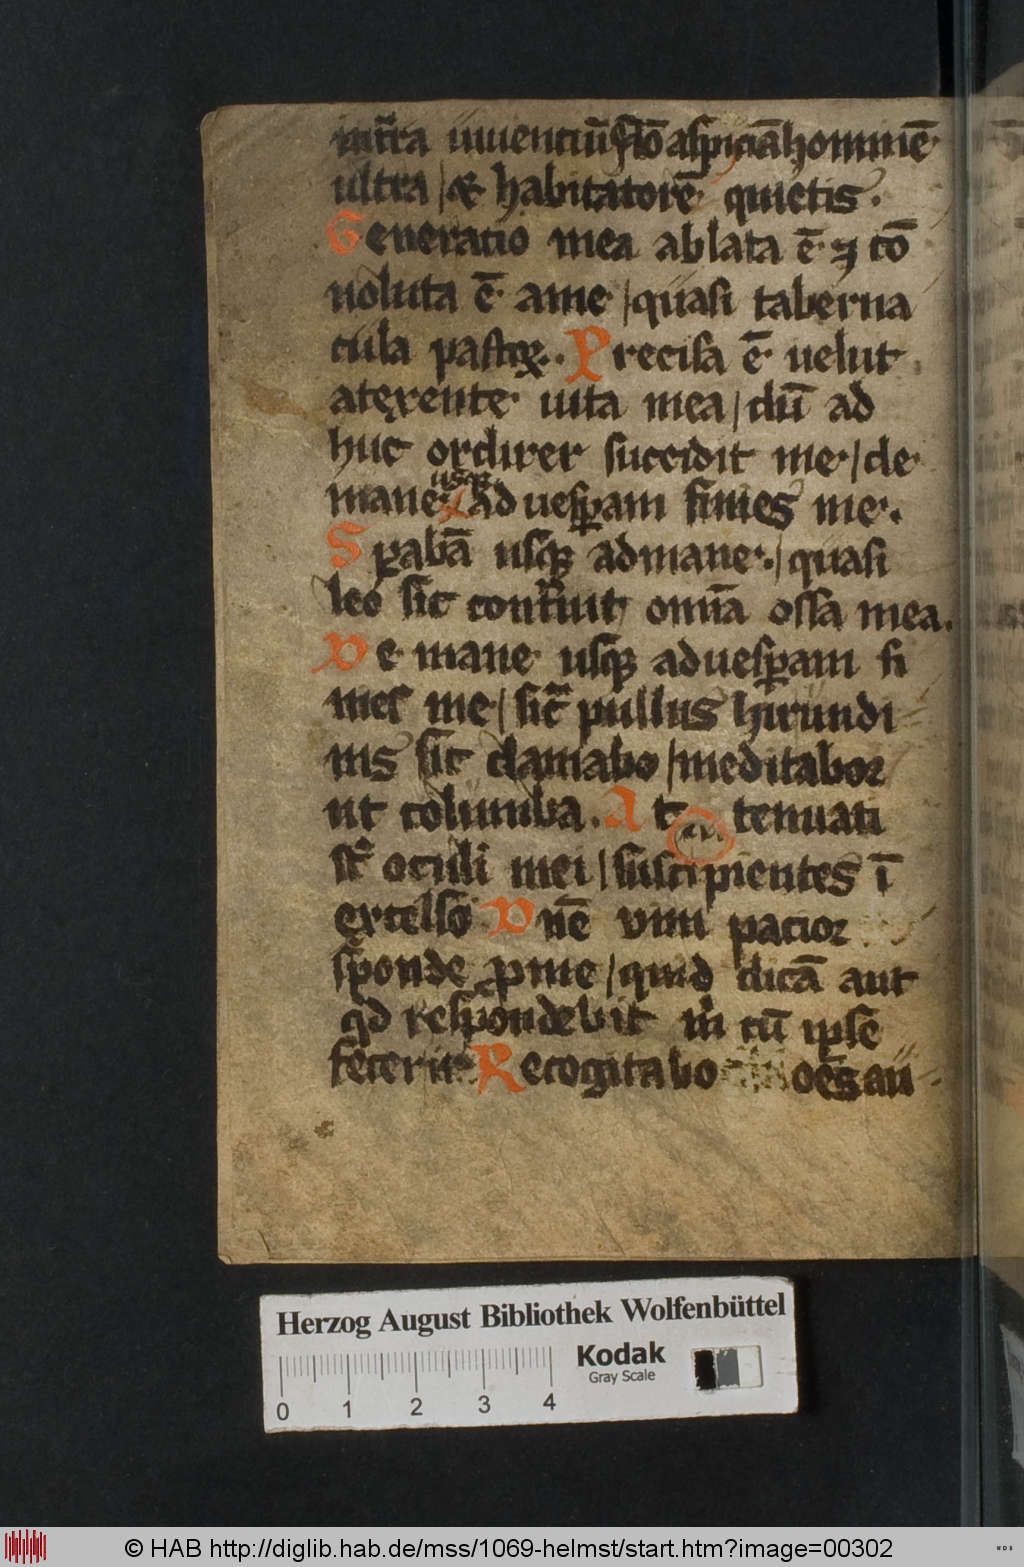 int̄ra uiuenciū Nō aspiciā hominē
ultra / & habitatorē quietis.
Generatio mea ablata ē ⁊ cō
uoluta ē a me / quasi taberna
cula pastoꝝ. Precisa ē uelut
a texente uita mea / dū ad
huc ordirer succidit me / de
mane usqꝫ ad uesꝑam finies me.
Sꝑabā usqꝫ ad mane / quasi
leo sic contͥuit omīa ossa mea.
De mane usqꝫ ad uesꝑam fi
nies me / sic̄ pullus hirundi
nis sic clamabo / meditabor
ut columba. At tenuati
st̄ oculi mei / suscipientes ī
excelso Dn̄e uim pacior
sponde ꝓ me / quid dicā aut
qd respondebit m̄ cū ipse
fecerit Recogitabo oēs an
Herzog August Bibliothek Wolfenbüttel
Kodak
Gray Scale
0 1 2 3 4
© HAB http://diglib.hab.de/mss/1069-helmst/start.htm?image=00302